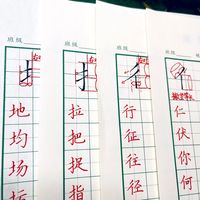 班级
地
均
场
班级
拉
把
捉
指
班级
行
征
往
径
班级
仁
伏
你
何